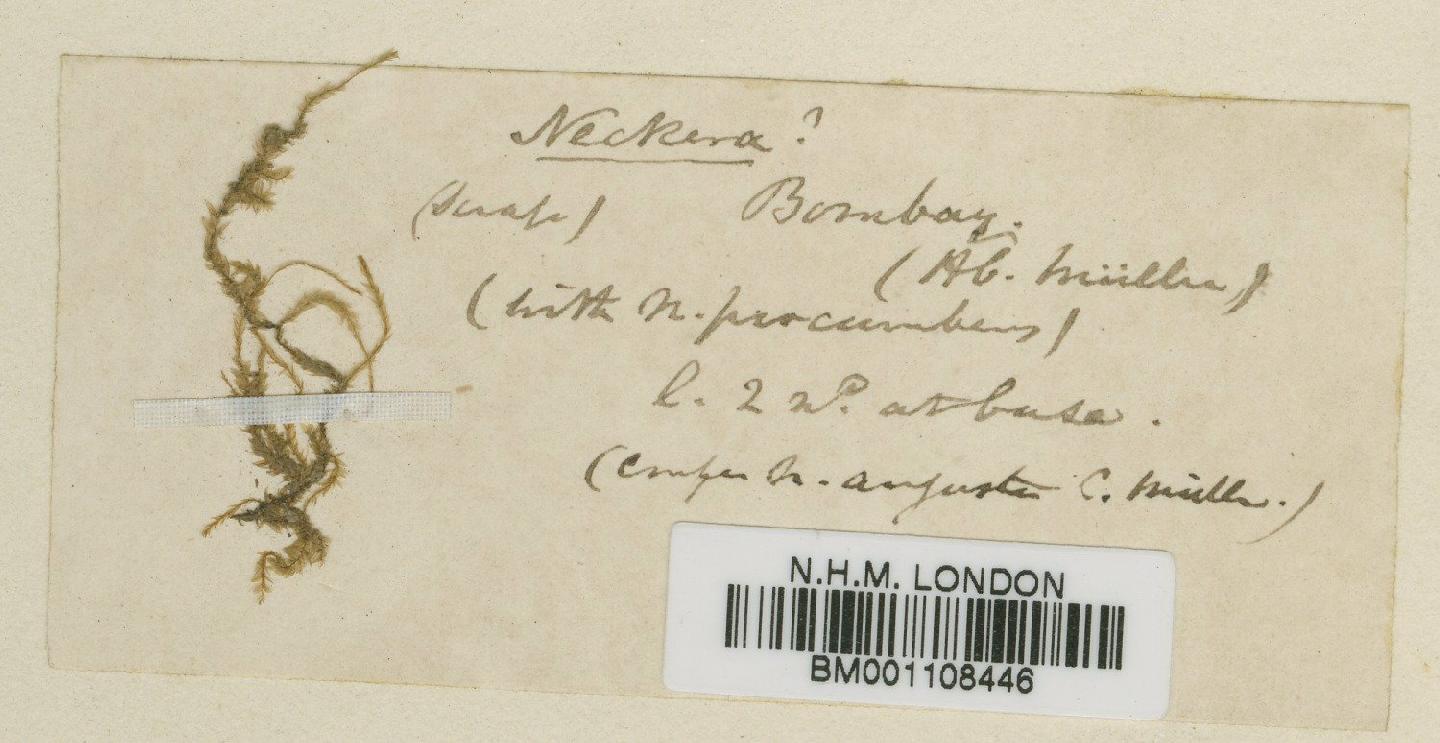 Neckera?
(scrap) Bombay.
(Hb. Müller)
(with N. procumbens)
l. 2 nd. at base.
(confer N. angusta C. Müller.)
N.H.M. LONDON
BM001108446